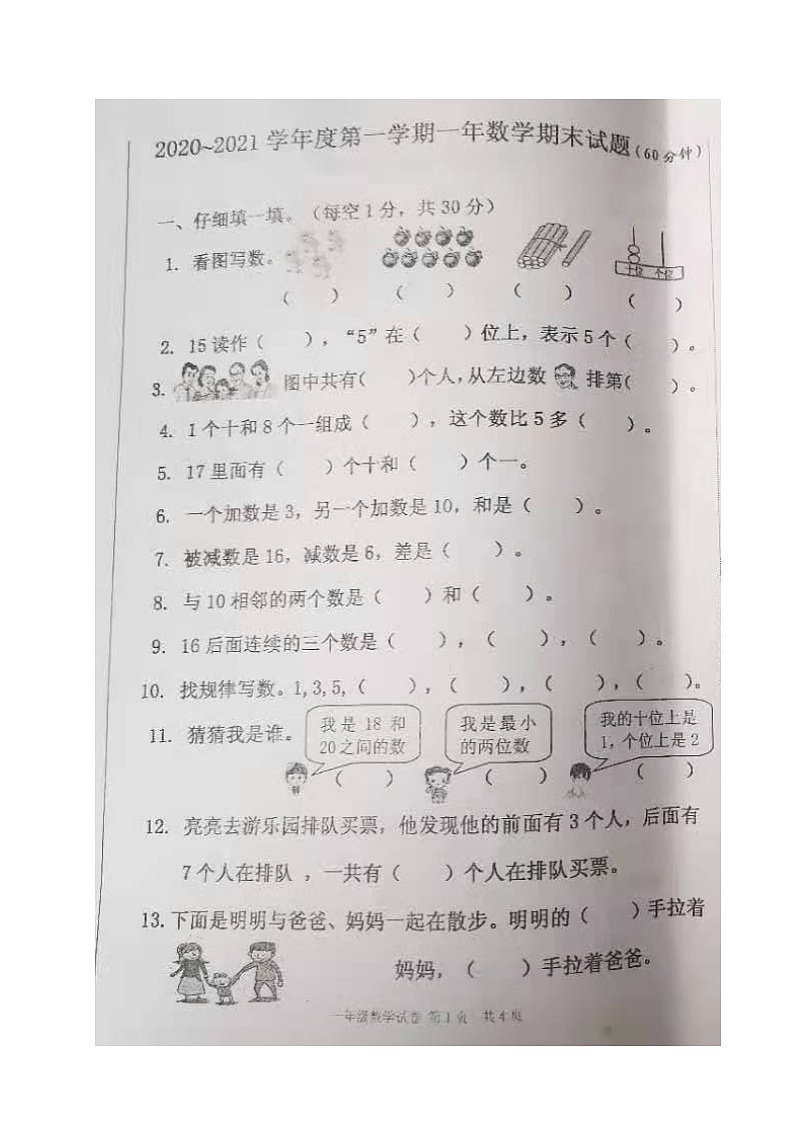 2020~2021学年度第一学期一年数学期末试题(60分钟)
一、仔细填一填。（每空1分，共30分）
1. 看图写数。
十位 个位
（　　） （　　） （　　） （　　）
2. 15读作（　　），“5”在（　　）位上，表示5个（　　）。
3. 图中共有（　　）个人，从左边数 排第（　　）。
4. 1个十和8个一组成（　　），这个数比5多（　　）。
5. 17里面有（　　）个十和（　　）个一。
6. 一个加数是3，另一个加数是10，和是（　　）。
7. 被减数是16，减数是6，差是（　　）。
8. 与10相邻的两个数是（　　）和（　　）。
9. 16后面连续的三个数是（　　），（　　），（　　）。
10. 找规律写数。1,3,5,（　　），（　　），（　　），（　　）。
11. 猜猜我是谁。
我是18和
20之间的数
我是最小
的两位数
我的十位上是
1，个位上是2
（　　） （　　） （　　）
12. 亮亮去游乐园排队买票，他发现他的前面有3个人，后面有
7个人在排队，一共有（　　）个人在排队买票。
13. 下面是明明与爸爸、妈妈一起在散步。明明的（　　）手拉着
妈妈，（　　）手拉着爸爸。
一年级数学试卷 第1页 共4页